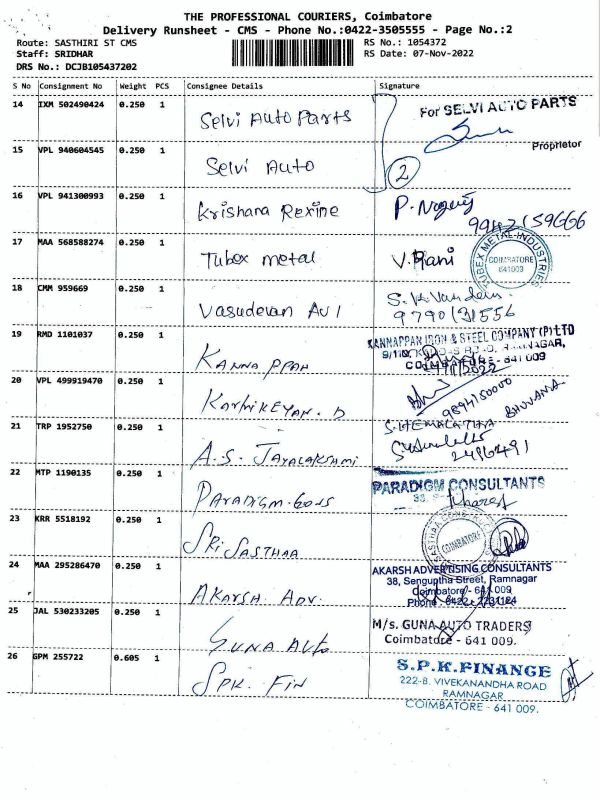 THE PROFESSIONAL COURIERS, Coimbatore
Delivery Runsheet - CMS - Phone No.:0422-3505555 - Page No.:2
Route: SASTHIRI ST CMS RS No.: 1054372
Staff: SRIDHAR RS Date: 07-Nov-2022
DRS No.: DCJB105437202
S No Consignment No Weight PCS Consignee Details Signature
14 IXM 502490424 0.250 1 Selvi Auto Parts For SELVI AUTO PARTS
Proprietor
15 VPL 940604545 0.250 1 Selvi Auto 2
16 VPL 941300993 0.250 1 Krishana Rexine
9942159666
17 MAA 568588274 0.250 1 Tubex metal V. Rani TUBEX METAL INDUSTRIES COIMBATORE 641003
18 CMM 959669 0.250 1 Vasudevan AU1
9790131556
19 RMD 1101037 0.250 1 Kannappan KANNAPPAN IRON & STEEL COMPANY (P) LTD
RAMNAGAR,
COIMBATORE - 641 009
20 VPL 499919470 0.250 1 Karthikeyan. D 9894150000 BHUVANA
21 TRP 1952750 0.250 1 A.S. Jayalakshmi S. HEMALATHA
2496491
22 MTP 1190135 0.250 1 Paradigm. Cons PARADIGM CONSULTANTS
23 KRR 5518192 0.250 1 Sri Sasthaa COIMBATORE
24 MAA 295286470 0.250 1 Akarsh. Adv. AKARSH ADVERTISING CONSULTANTS
38, Senguptha Street, Ramnagar
Coimbatore - 641 009
Phone : 0422-
25 JAL 530233205 0.250 1 Guna Auto M/s. GUNA AUTO TRADERS
Coimbatore - 641 009.
26 GPM 255722 0.605 1 SPK. Fin S.P.K.FINANCE
222-B, VIVEKANANDHA ROAD
RAMNAGAR
COIMBATORE - 641 009.